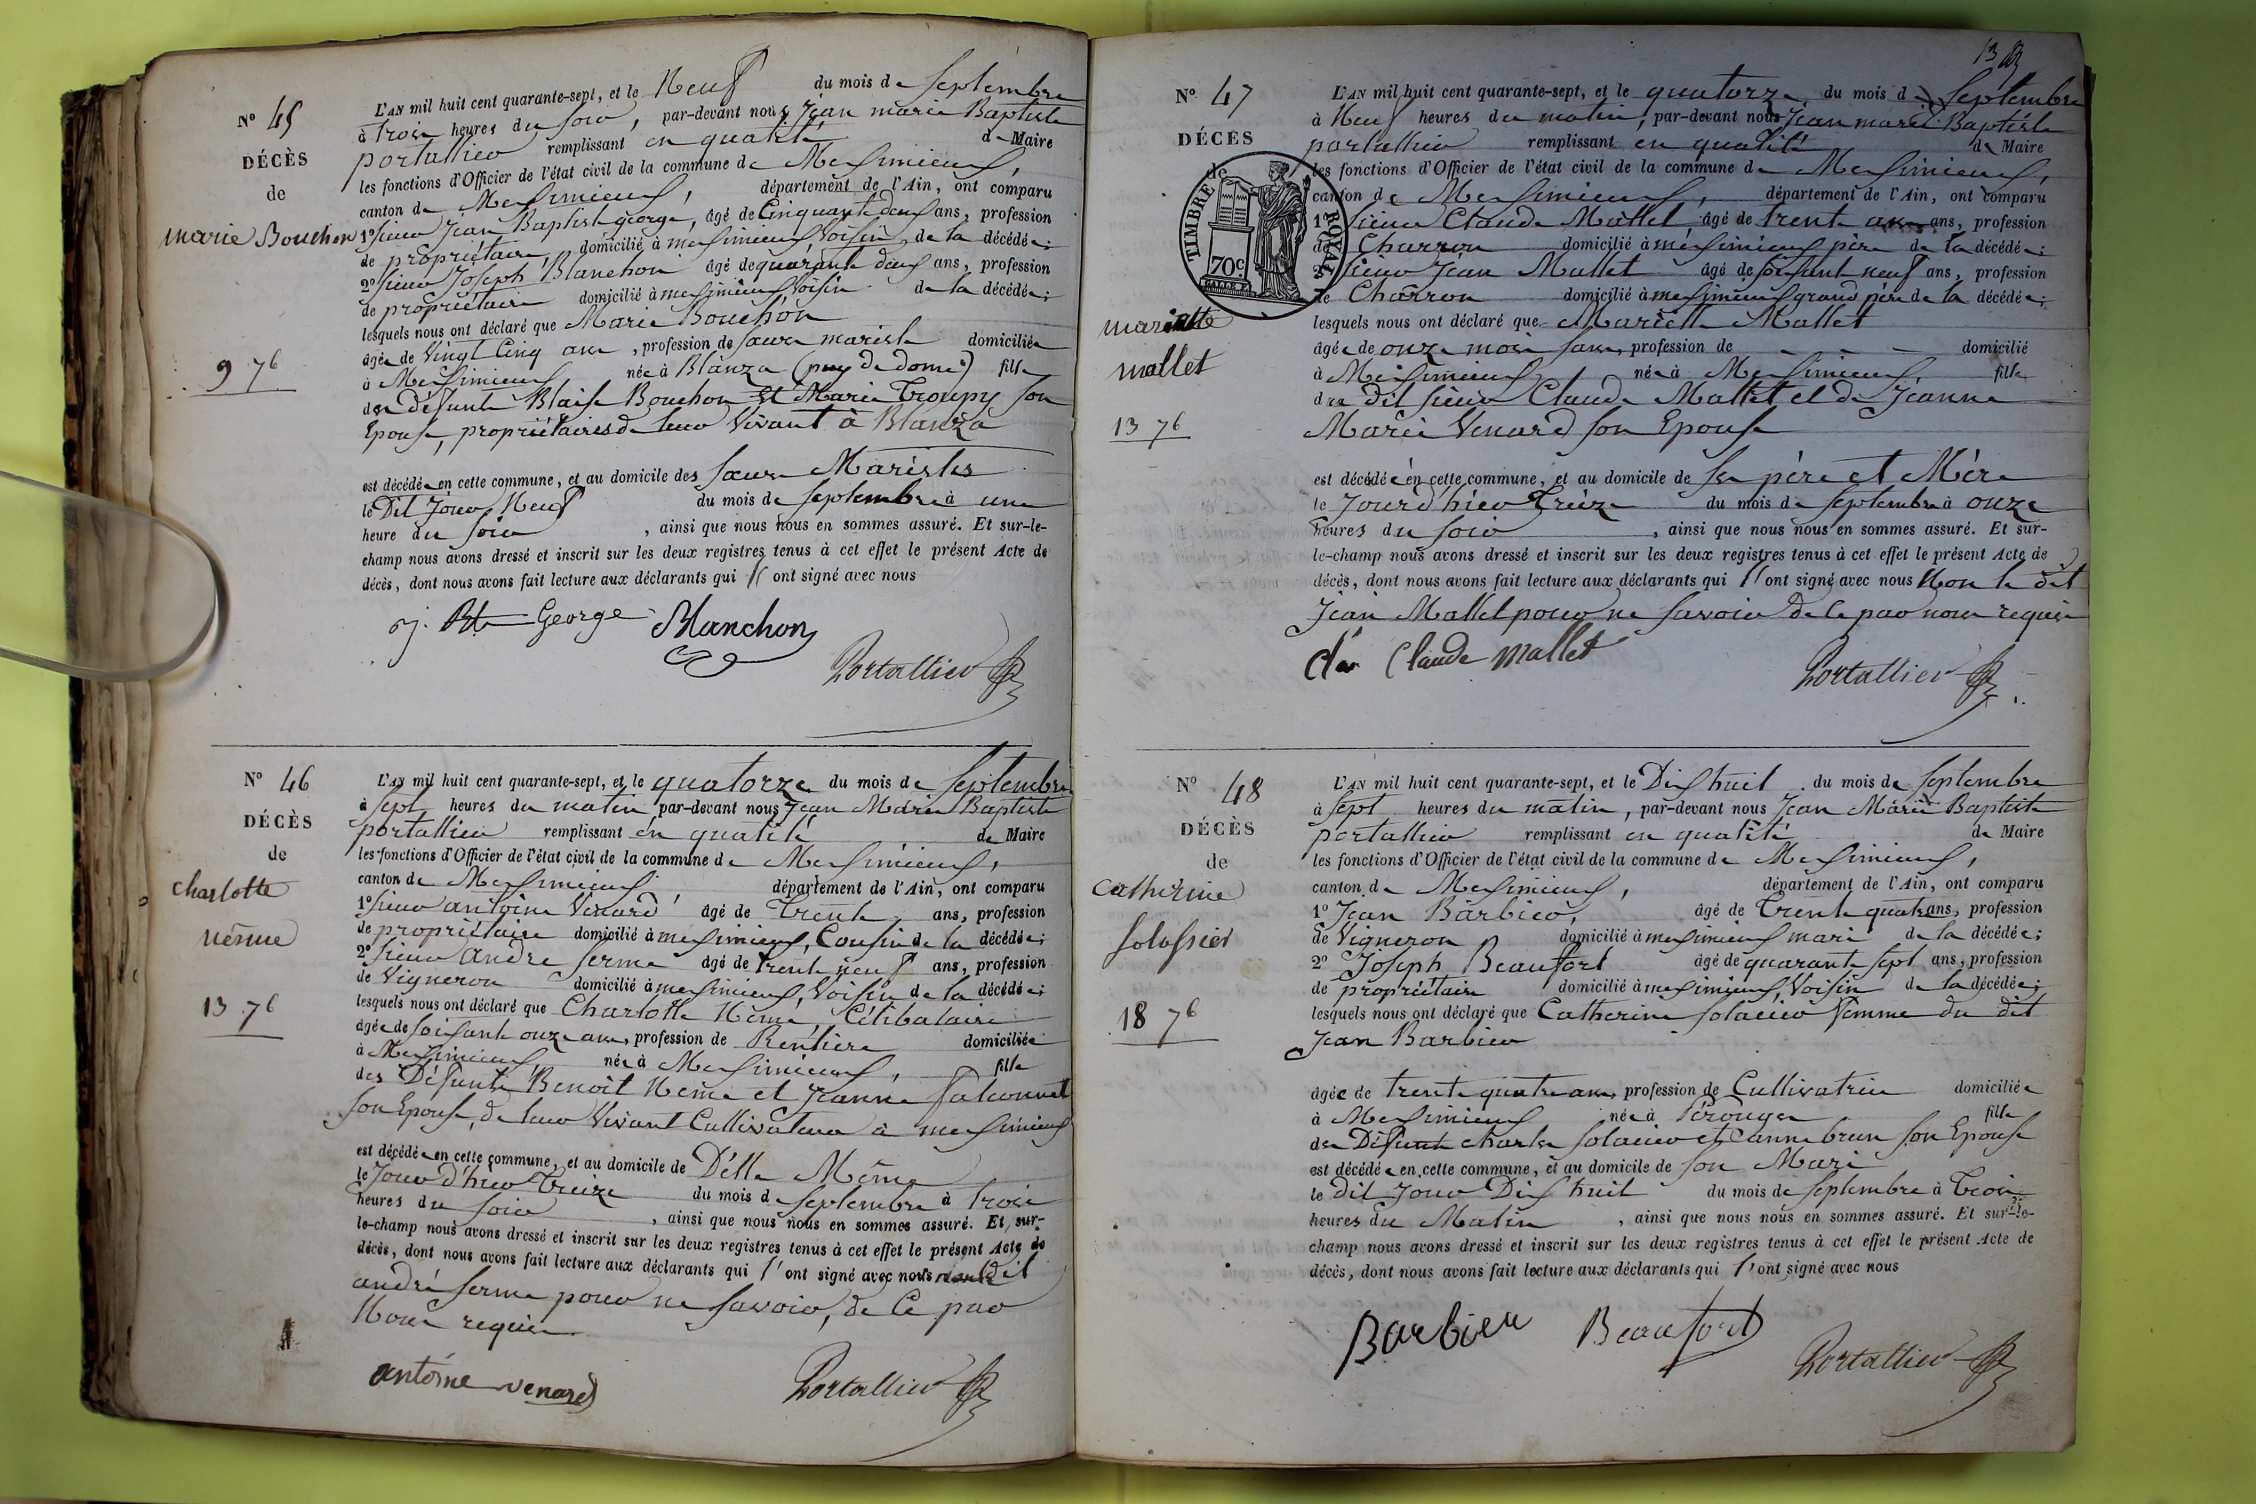 N° 45
DÉCÈS
de
marie Bouchon
9 7b
L'AN mil huit cent quarante-sept, et le Neuf du mois de Septembre
à trois heures du soir, par-devant nous Jean marie Baptiste
portallier remplissant en qualité de Maire
les fonctions d'Officier de l'état civil de la commune de Meximieux,
canton de Meximieux, département de l'Ain, ont comparu
1° Sieur Jean Baptiste george, âgé de Cinquante deux ans, profession
de propriétaire, domicilié à meximieux Voisin de la décédée;
2° Sieur Joseph Blanchon âgé de quarante deux ans, profession
de propriétaire domicilié à meximieux Voisin de la décédée;
lesquels nous ont déclaré que Marie Bouchon
âgée de Vingt Cinq ans, profession de Sœur mariste domiciliée
à Meximieux née à Blanza (puy de dome) fille
des défunts Blaise Bouchon et Marie Troupy son
Epouse, propriétaires de leur Vivant à Blanza
est décédée en cette commune, et au domicile des Sœurs Maristes
le Dit Jour Neuf du mois de Septembre à une
heure du soir, ainsi que nous nous en sommes assuré. Et sur-le-
champ nous avons dressé et inscrit sur les deux registres tenus à cet effet le présent Acte de
décès, dont nous avons fait lecture aux déclarants qui ont signé avec nous
j. Bte George Blanchon
Portallier
N° 46
DÉCÈS
de
Charlotte
neme
13 7b
L'AN mil huit cent quarante-sept, et le quatorze du mois de Septembre
à sept heures du matin par-devant nous Jean Marie Baptiste
portallier remplissant en qualité de Maire
les fonctions d'Officier de l'état civil de la commune de Meximieux,
canton de Meximieux, département de l'Ain, ont comparu
1° Sieur antoine Venard âgé de Trente ans, profession
de propriétaire domicilié à meximieux, Cousin de la décédée;
2° Sieur André ferme âgé de trente neuf ans, profession
de Vigneron domicilié à meximieux, Voisin de la décédée;
lesquels nous ont déclaré que Charlotte Nême, Célibataire
âgée de soixante onze ans, profession de Rentière domiciliée
à Meximieux née à Meximieux, fille
des Défunts Benoit Neme et Jeanne falconnet
son Epouse, de leur Vivant Cultivateurs à meximieux
est décédée en cette commune, et au domicile de D'elle Même
le Jour d'hier treize du mois de Septembre à trois
heures du soir, ainsi que nous nous en sommes assuré. Et sur-
le-champ nous avons dressé et inscrit sur les deux registres tenus à cet effet le présent Acte de
décès, dont nous avons fait lecture aux déclarants qui ont signé avec nous dit
andré ferme pour ne savoir, de Ce par
Nous requis
antoine venard
Portallier
N° 47
DÉCÈS
de
TIMBRE ROYAL
70c.
mariette
mallet
13 7b
13
L'AN mil huit cent quarante-sept, et le quatorze du mois de Septembre
à Neuf heures du matin, par-devant nous Jean marie Baptiste
portallier remplissant en qualité de Maire
les fonctions d'Officier de l'état civil de la commune de Meximieux,
canton de Meximieux, département de l'Ain, ont comparu
1° Sieur Claude Mallet âgé de trente ans, profession
de Charron domicilié à méximieux père de la décédée;
2° Sieur Jean Mallet âgé de soixante neuf ans, profession
de Charron domicilié à meximieux grand père de la décédée;
lesquels nous ont déclaré que Mariette Mallet
âgée de onze mois sans, profession de - - - domicilié
à Meximieux née à Meximieux, fille
du dit sieur Claude Mallet et de Jeanne
Marie Venard son Epouse
est décédée en cette commune, et au domicile de ses père et Mère
le Jourd'hier Treize du mois de Septembre à onze
heures du soir, ainsi que nous nous en sommes assuré. Et sur-
le-champ nous avons dressé et inscrit sur les deux registres tenus à cet effet le présent Acte de
décès, dont nous avons fait lecture aux déclarants qui ont signé avec nous Non le dit
Jean Mallet pour ne savoir de Ce par nous requis
Claude mallet
Portallier
N° 48
DÉCÈS
de
Catherine
Solassier
18 7b
L'AN mil huit cent quarante-sept, et le Dix huit du mois de Septembre
à Sept heures du matin, par-devant nous Jean Marie Baptiste
portallier remplissant en qualité de Maire
les fonctions d'Officier de l'état civil de la commune de Meximieux,
canton de Meximieux, département de l'Ain, ont comparu
1° Jean Barbier, âgé de Trente quatre ans, profession
de Vigneron domicilié à meximieux mari de la décédée;
2° Joseph Beaufort âgé de quarante sept ans, profession
de propriétaire domicilié à meximieux, Voisin de la décédée;
lesquels nous ont déclaré que Catherine Solacier Femme du dit
Jean Barbier
âgée de trente quatre ans, profession de Cultivatrice domiciliée
à Meximieux née à Pérouges fille
des Défunts charles Solacier et anne brun son Epouse
est décédée en cette commune, et au domicile de son Mari
le dit Jour Dix huit du mois de Septembre à Trois
heures du Matin, ainsi que nous nous en sommes assuré. Et sur-le-
champ nous avons dressé et inscrit sur les deux registres tenus à cet effet le présent Acte de
décès, dont nous avons fait lecture aux déclarants qui ont signé avec nous
Barbier Beaufort
Portallier